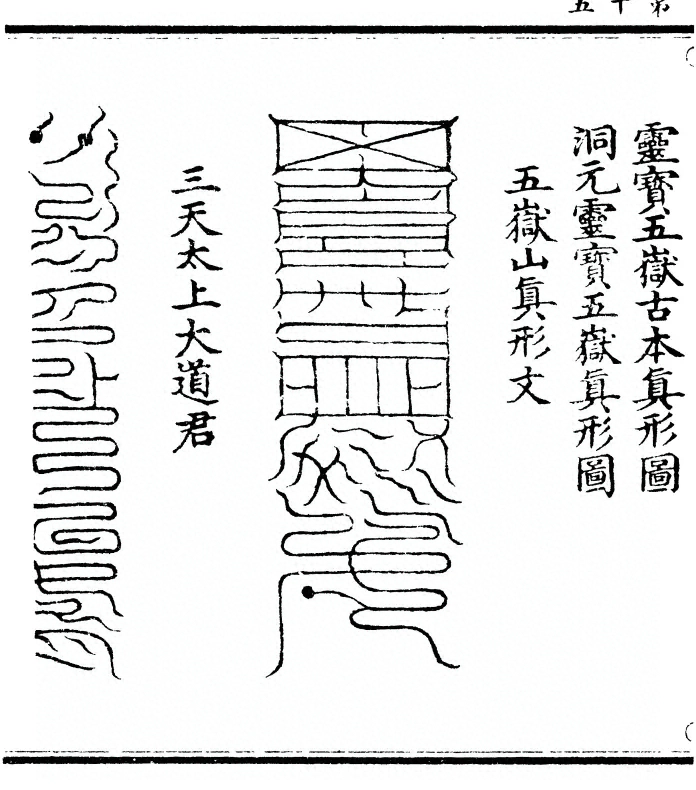 第十五
靈寶五嶽古本眞形圖
洞元靈寶五嶽眞形圖
五嶽山眞形文
三天太上大道君